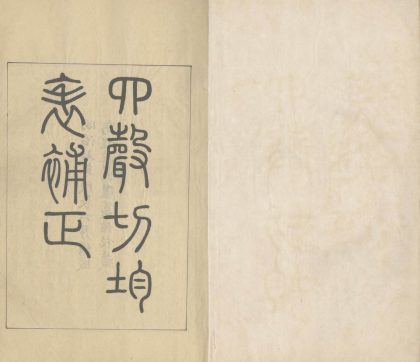 四聲切均
表補正